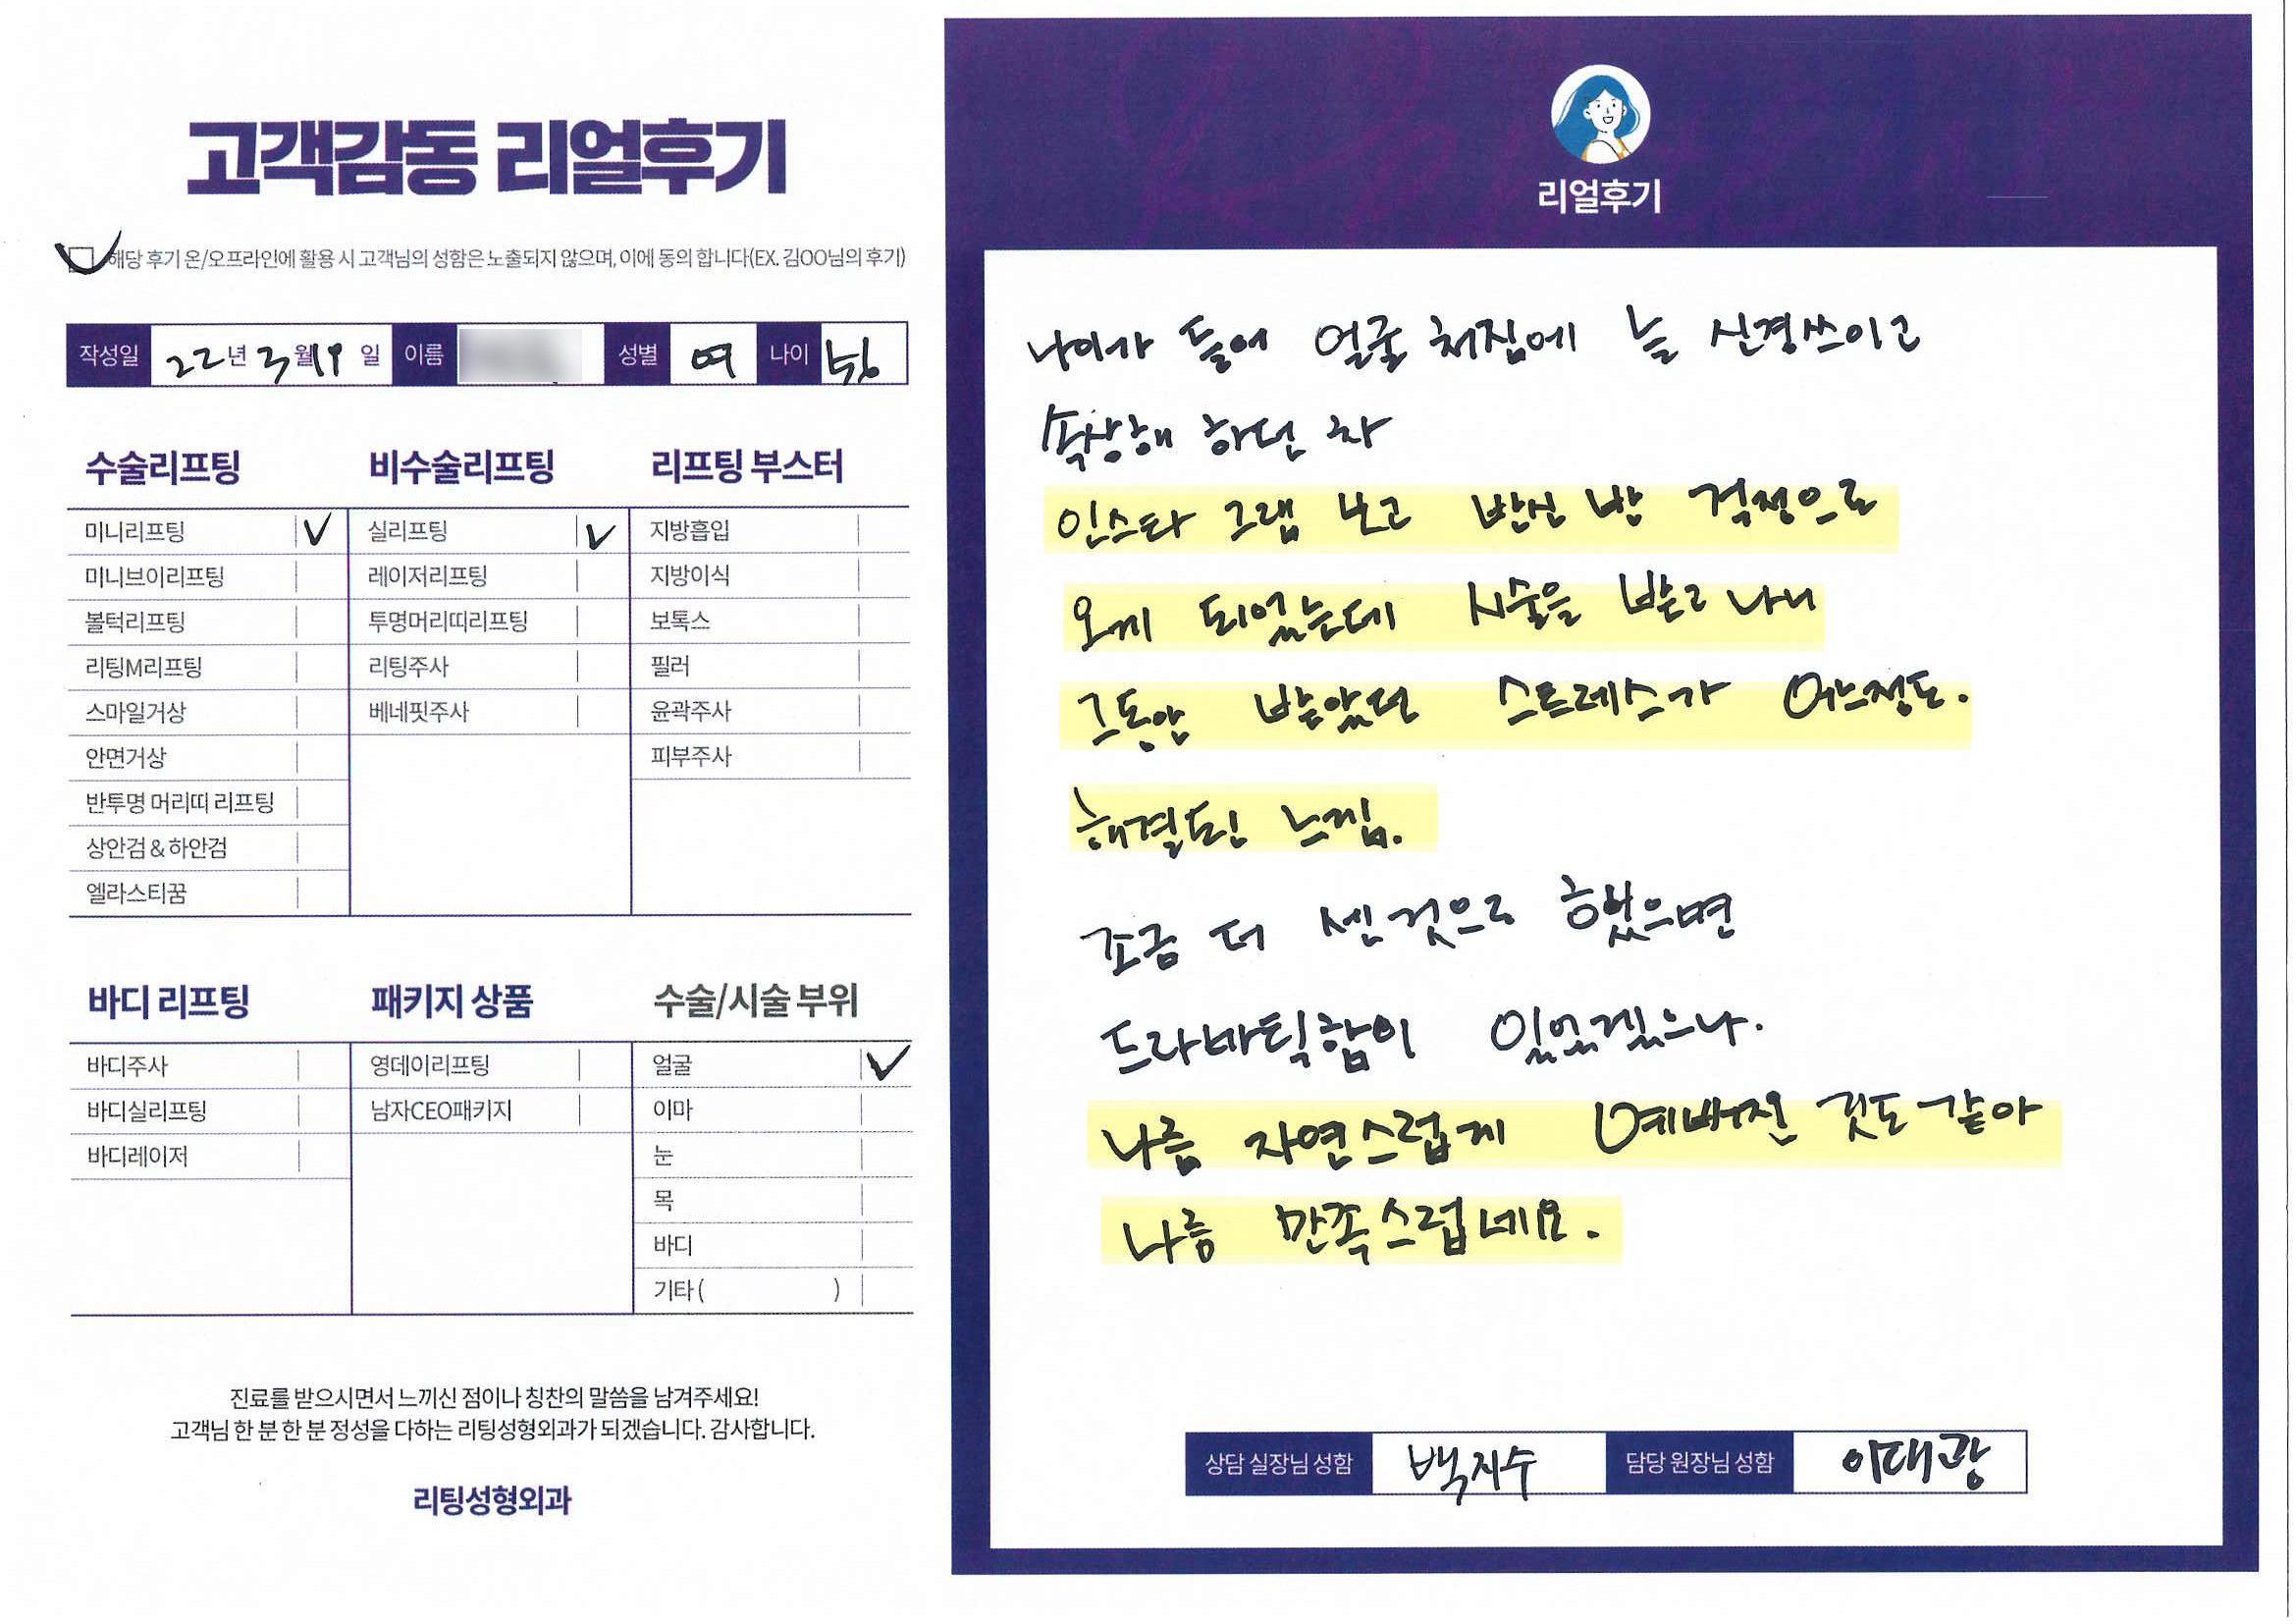 고객감동 리얼후기
해당 후기 온/오프라인에 활용 시 고객님의 성함은 노출되지 않으며, 이에 동의 합니다(EX. 김OO님의 후기)
작성일 22년 3월 19일 이름 성별 여 나이
수술리프팅 비수술리프팅 리프팅 부스터
미니리프팅 ✓ 실리프팅 ✓ 지방흡입
미니브이리프팅 레이저리프팅 지방이식
볼턱리프팅 투명머리띠리프팅 보톡스
리팅M리프팅 리팅주사 필러
스마일거상 베네핏주사 윤곽주사
안면거상 피부주사
반투명 머리띠 리프팅
상안검 & 하안검
엘라스티꿈
바디 리프팅 패키지 상품 수술/시술 부위
바디주사 영데이리프팅 얼굴 ✓
바디실리프팅 남자CEO패키지 이마
바디레이저 눈
목
바디
기타 ( )
진료를 받으시면서 느끼신 점이나 칭찬의 말씀을 남겨주세요!
고객님 한 분 한 분 정성을 다하는 리팅성형외과가 되겠습니다. 감사합니다.
리팅성형외과
리얼후기
나이가 들어 얼굴 처짐에 늘 신경쓰이고
속상해 하던 차
인스타 그램 보고 반신 반 걱정으로
오게 되었는데 시술을 받고 나니
그동안 받았던 스트레스가 어느정도.
해결된 느낌.
조금 더 센 것으로 했으면
드라마틱함이 있었겠으나.
나름 자연스럽게 예뻐진 것도 같아
나름 만족스럽네요.
상담 실장님 성함 백지수 담당 원장님 성함 이대광